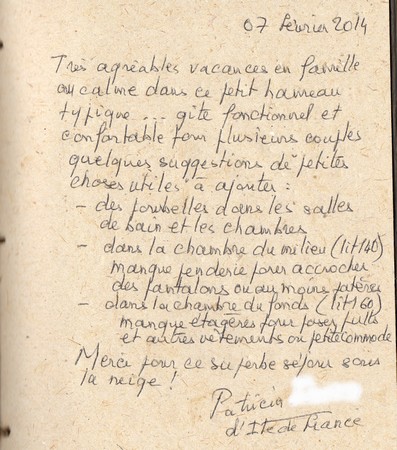 07 février 2014
Très agréables vacances en famille
au calme dans ce petit hameau
typique ... gîte fonctionnel et
confortable pour plusieurs couples
quelques suggestions de petites
choses utiles à ajouter :
- des poubelles dans les salles
de bain et les chambres
- dans la chambre du milieu (lit 140)
manque penderie pour accrocher
des pantalons ou au moins patères
- dans la chambre du fonds (lit 160)
manque étagères pour poser pulls
et autres vêtements ou petite commode
Merci pour ce superbe séjour sous
la neige !
Patricia
d'Ile de France